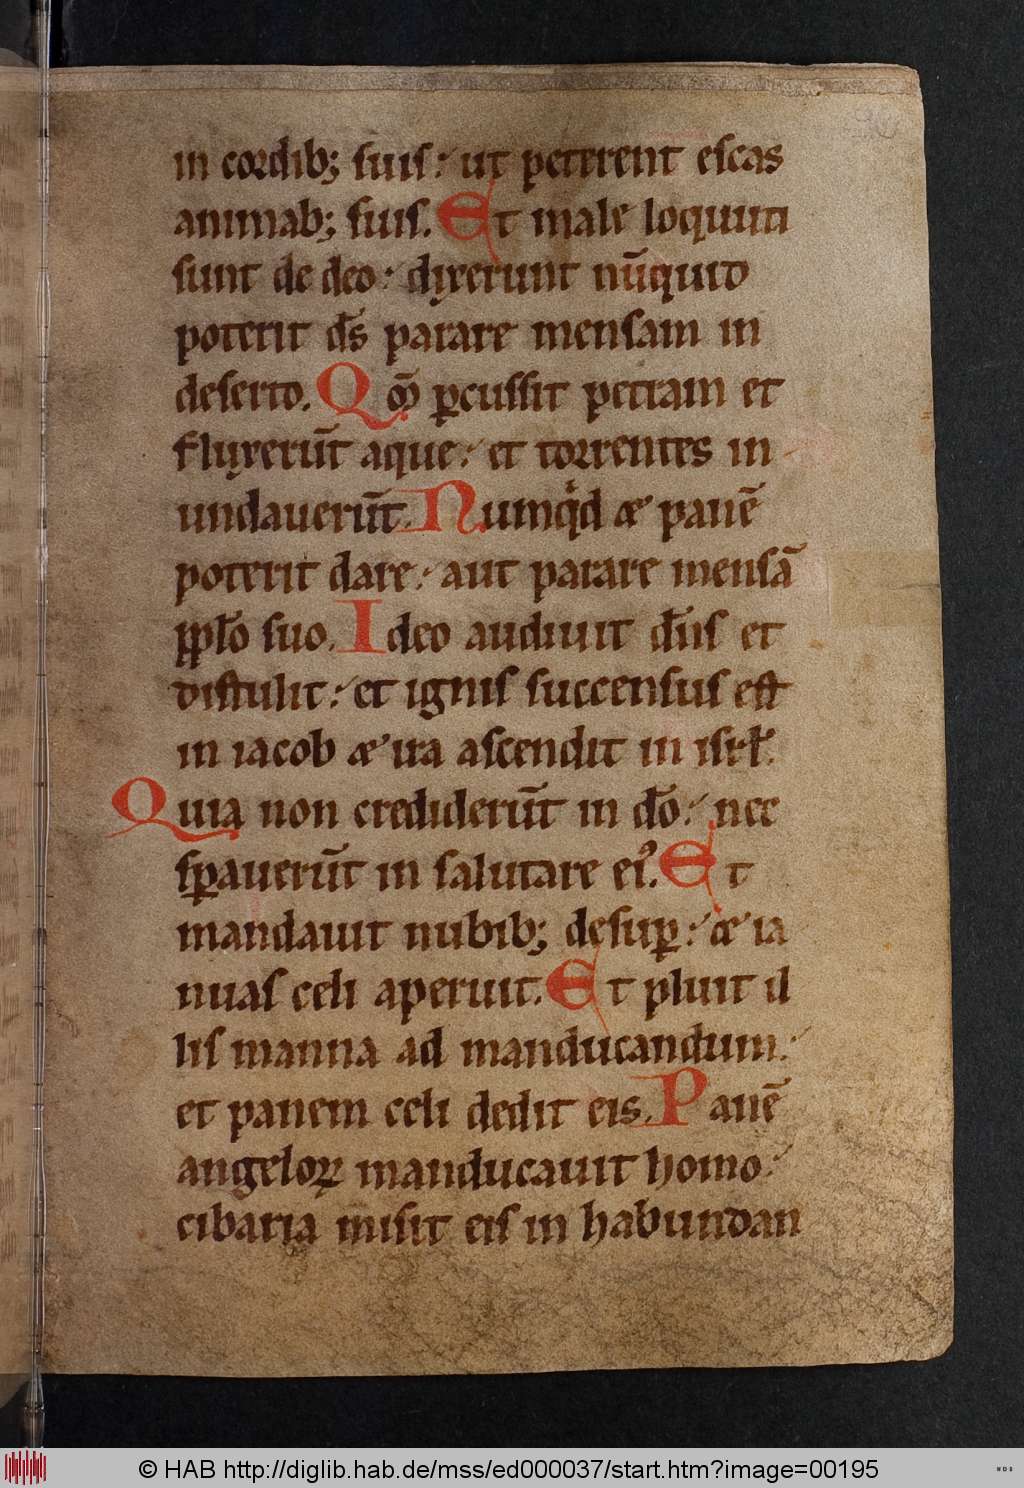 in cordib; suis: ut peterent escas
animab; suis. Et male loquuti
sunt de deo: dyxerunt nu̅quid
poterit d̅s parare mensam in
deserto. Qm̅ ꝑcussit petram et
fluxeru̅t aque: et torrentes in
undaueru̅t. Numqͥd æ pane̅
poterit dare: aut parare mensa̅
pplo̅ suo. Ideo audiuit dn̅s et
distulit: et ignis succensus est
in iacob æ ira ascendit in isrl̅.
Quia non crediderun̅t in do̅: nec
sꝑaueru̅t in salutare ei᾽. Et
mandauit nubib; desuꝑ: æ ia
nuas celi aperuit. Et pluit il
lis manna ad manducandum:
et panem celi dedit eis. Pane̅
angeloꝝ manducauit homo:
cibaria misit eis in habundan
© HAB http://diglib.hab.de/mss/ed000037/start.htm?image=00195